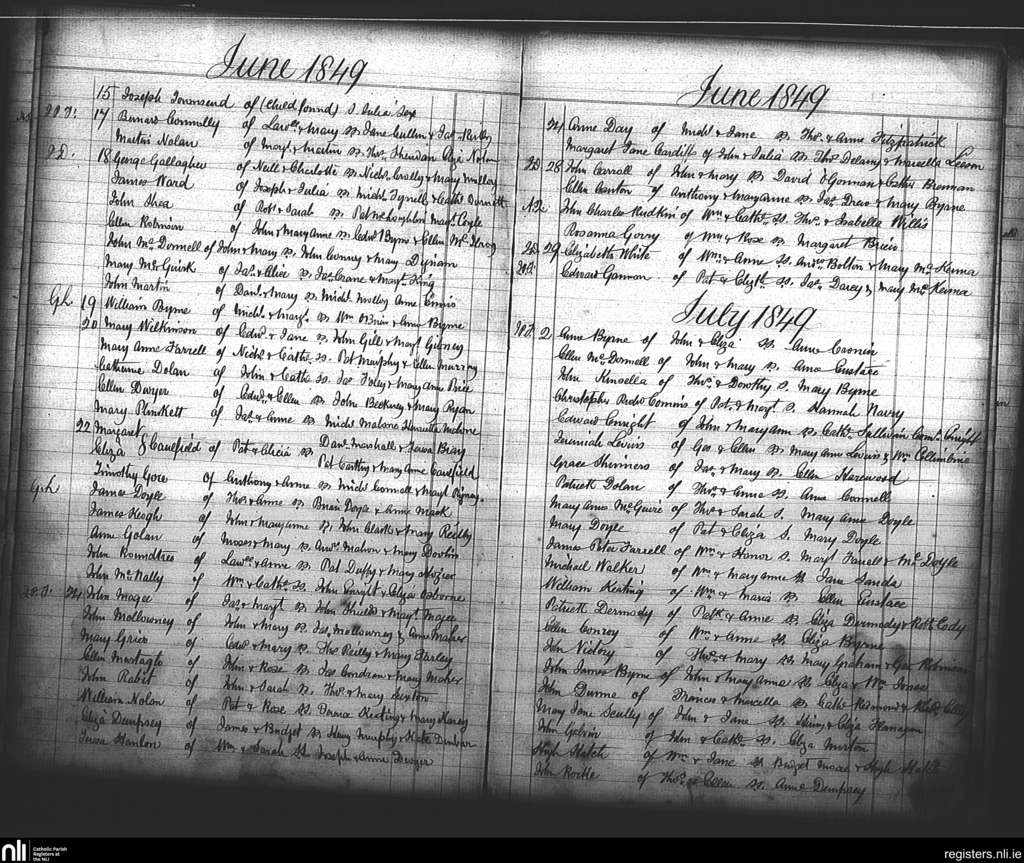 June 1849
15 Joseph Townsend of (Child found) S Julia Fox
17 Bernard Connolley of Lawce & Mary Ss Jane Cullen & Jas Reilly
Martin Nolan of Margt & Martin Ss Thos Sheridan Eliza Nolan
18 George Gallagher of Neill & Charlotte Ss Nichs Crolly & Mary Mulloy
James Ward of Joseph & Julia Ss Michl Tyrrell & Cathe
John Shea of Robt & Sarah Ss Pat McLoughlin Margt Coyle
Ellen Robinson of John & Maryanne Ss Edwd Byrne & Ellen Mc
John McDonnell of John & Mary Ss John Conroy & Mary Dignam
Mary McGuirk of Jas & Alice Ss Jas Crane & Margt King
John Martin of Danl & Mary Ss Michl Molloy Anne Ennis
Gh 19 William Byrne of Michl & Margt Ss Wm OBrien & Anne Byrne
20 Mary Wilkinson of Edwd & Jane Ss John Gill & Margt Gibney
Mary Anne Farrell of Nichs & Cathe Ss Pat Murphy & Ellen Murray
Catherine Dolan of John & Cathe Ss Jas Foley & Mary Anne Price
Ellen Dwyer of Edwd & Ellen Ss John & Mary Ryan
Mary Plunkett of Jas & Anne Ss Michl Malone Henrietta Malone
22 Margaret
Eliza } Caulfield of Pat & Alicia Ss Danl Marshall & Teresa Bray
Pat Carthy & Mary Anne Caulfield
Timothy Gore of Anthony & Anne Ss Michl Connell & Margt
Gh James Doyle of Thos & Anne Ss Brian Doyle & Anne Mack
James Keogh of John & Maryanne Ss John Clark & Mary Reilly
Anne Golan of Moses & Mary Ss Andw Mahon & Mary Devlin
John Roundtree of Lawce & Anne Ss Pat Duffy & Mary
John McNally of Wm & Cathe Ss John Enright & Eliza Osborne
24 John Magee of Jas & Margt Ss John & Margt Magee
John Mollowney of John & Mary Ss Jas Mollowney & Anne Maher
Mary Grier of Edwd & Mary Ss Thos Reilly & Mary Farley
Ellen of John & Rose Ss Jas Condron & Mary Maher
John Rabit of John & Sarah Ss Thos & Mary Sexton
William Nolan of Pat & Rose Ss Keating & Mary
Eliza Dempsey of James & Bridget Ss Henry Murphy & Kate Dunbar
Teresa Hanlon of Wm & Sarah Ss Joseph & Anne Dwyer
June 1849
24 Anne Day of Michl & Jane Ss Thos & Anne Fitzpatrick
Margaret Jane Cardiff of John & Julia Ss Thos Delany & Marsella Leeson
28 John Carroll of John & Mary Ss David OGorman & Cathe Brennan
Ellen of Anthony & Maryanne Ss Jas Drew & Mary Byrne
John Charles Rudkin of Wm & Cathe Ss Thos & Isabella Willis
Rosanna Gorry of Wm & Rose Ss Margaret
29 Elizabeth White of Wm & Anne Ss Andrew Bolton & Mary McKenna
Edward Gannon of Pat & Elizth Ss Jas Darcy & Mary McKenna
July 1849
2 Anne Byrne of John & Eliza Ss Anne Cronin
Ellen McDonnell of John & Mary Ss Anne Eustace
John Kinsella of Thos & Dorothy S Mary Byrne
Christopher Pedro Comins of Pat & Margt S Hannah Navry
Edward Enright of John & Maryanne Ss Cathe Sullivan Edwd Enright
Jeremiah Lewis of Geo & Ellen Ss Mary Anne Lewis & Wm Collumbine
Grace Skinners of Jas & Mary Ss Ellen Harewood
Patrick Dolan of Thos & Anne Ss Anne Connell
Mary Anne McGuire of Thos & Sarah S Mary Anne Doyle
Mary Doyle of Pat & Eliza S Mary Doyle
James Peter Farrell of Wm & Honor S Margt Farrell & Mc Doyle
Michael Walker of Wm & Maryanne St Jane Sands
William Keating of Wm & Maria Ss Ellen Eustace
Patrick Dermody of Patk & Anne Ss Eliza Dermody & Robt Cody
Ellen Conroy of Wm & Anne Ss Eliza Byrne
John Victory of Thos & Mary Ss Mary Graham & Geo Robinson
John James Byrne of John & Maryanne Ss Eliza & Wm Jones
John Dunne of Francis & Marcella Ss Cathe Redmond &
Mary Jane Scully of John & Jane Ss & Eliza Flanagan
John Galvin of John & Cathe Ss Eliza Murton
Hugh Hatch of Wm & Jane St Bridget Moore & Hugh Hatch
John Rorke of Thos & Ellen Ss Anne Dempsey
nli Catholic Parish
Registers at
the NLI
registers.nli.ie